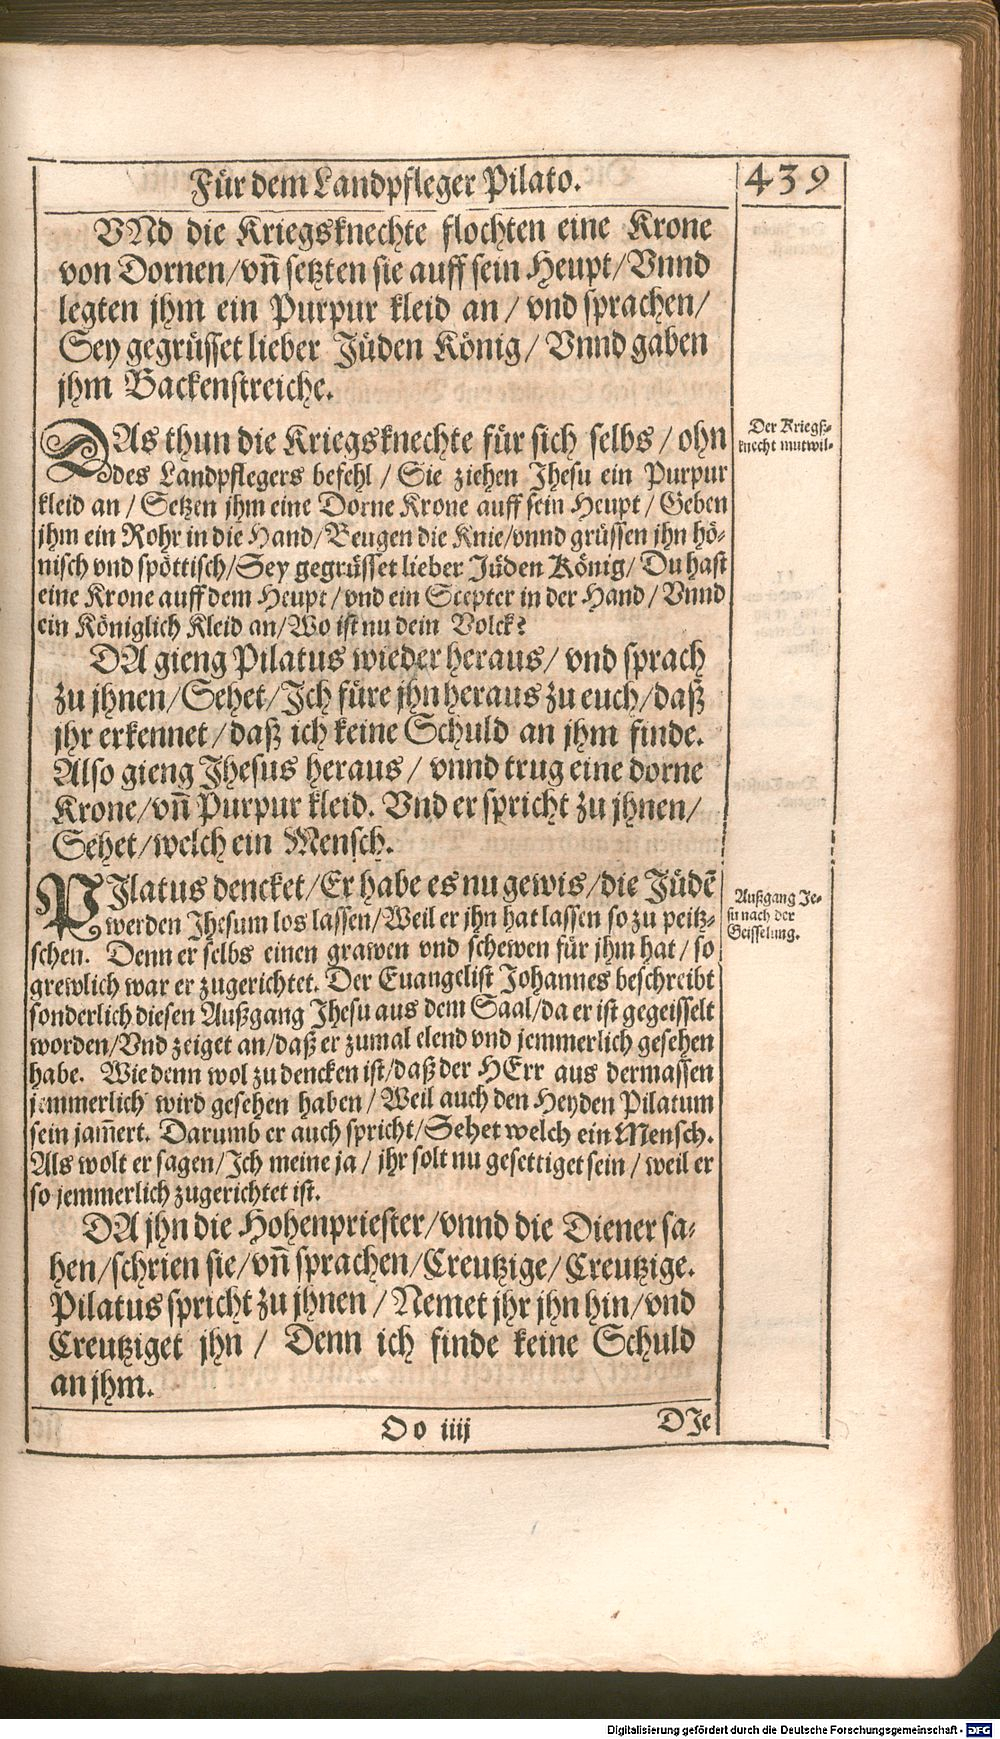 Für dem Landpfleger Pilato.
439
VNd die Kriegsknechte flochten eine Krone
von Dornen/vñ setzten sie auff sein Heupt/Vnnd
legten jhm ein Purpur kleid an/vnd sprachen/
Sey gegrüsset lieber Jüden König/Vnnd gaben
jhm Backenstreiche.
DAs thun die Kriegsknechte für sich selbs/ohn
des Landpflegers befehl/Sie ziehen Jhesu ein Purpur
kleid an/Setzen jhm eine Dorne Krone auff sein Heupt/Geben
jhm ein Rohr in die Hand/Beugen die Knie/vnnd grüssen jhn hö-
nisch vnd spöttisch/Sey gegrüsset lieber Jüden König/Du hast
eine Krone auff dem Heupt/vnd ein Scepter in der Hand/Vnnd
ein Königlich Kleid an/Wo ist nu dein Volck?
Der Kriegß-
knecht mutwil-
DA gieng Pilatus wieder heraus/vnd sprach
zu jhnen/Sehet/Ich füre jhn heraus zu euch/daß
jhr erkennet/daß ich keine Schuld an jhm finde.
Also gieng Jhesus heraus/vnnd trug eine dorne
Krone/vñ Purpur kleid. Vnd er spricht zu jhnen/
Sehet/welch ein Mensch.
PIlatus dencket/Er habe es nu gewis/die Jüdẽ
werden Jhesum los lassen/Weil er jhn hat lassen so zu peitz-
schen. Denn er selbs einen grawen vnd schewen für jhm hat/so
grewlich war er zugerichtet. Der Euangelist Johannes beschreibt
sonderlich diesen Außgang Jhesu aus dem Saal/da er ist gegeisselt
worden/Vnd zeiget an/daß er zumal elend vnd jemmerlich gesehen
habe. Wie denn wol zu dencken ist/daß der HErr aus dermassen
jemmerlich wird gesehen haben/Weil auch den Heyden Pilatum
sein jam̃ert. Darumb er auch spricht/Sehet welch ein Mensch.
Als wolt er sagen/Ich meine ja/jhr solt nu gesettiget sein/weil er
so jemmerlich zugerichtet ist.
Außgang Je-
su nach der
Geisselung.
DA jhn die Hohenpriester/vnnd die Diener sa-
hen/schrien sie/vñ sprachen/Creutzige/Creutzige.
Pilatus spricht zu jhnen/Nemet jhr jhn hin/vnd
Creutziget jhn/Denn ich finde keine Schuld
an jhm.
Oo iiij
DJe
Digitalisierung gefördert durch die Deutsche Forschungsgemeinschaft - DFG